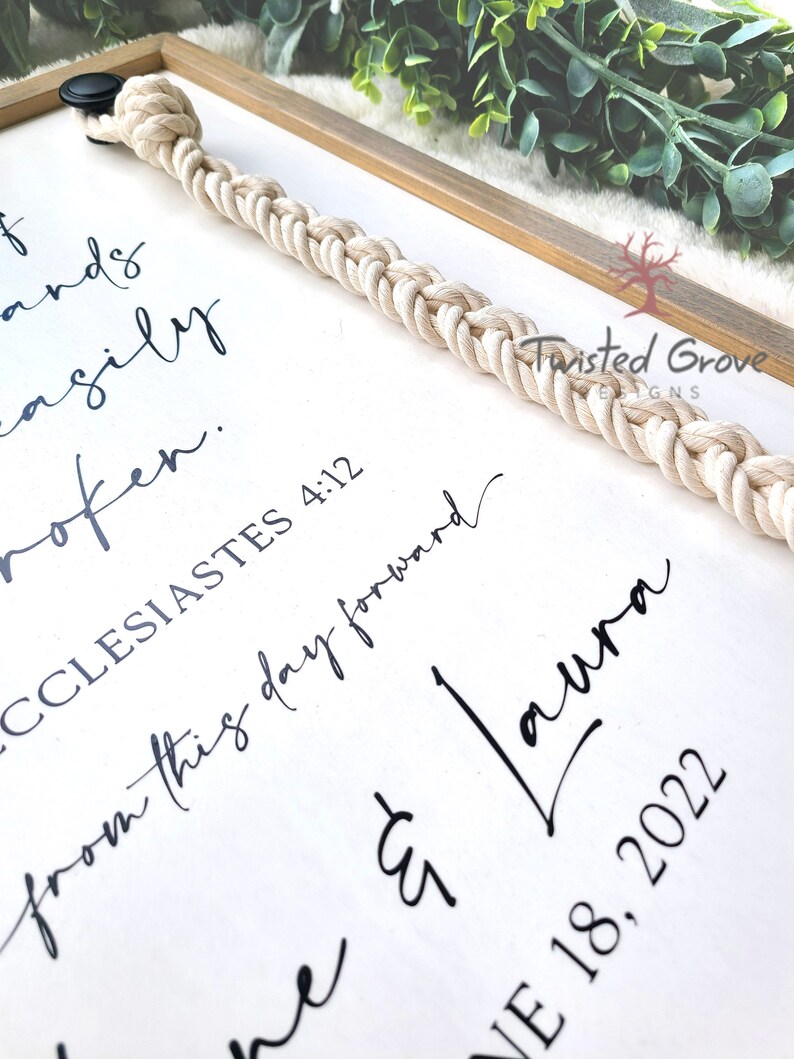 of
ands
easily
roken.
ECCLESIASTES 4:12
from this day forward
& Laura
NE 18, 2022
Twisted Grove
DESIGNS